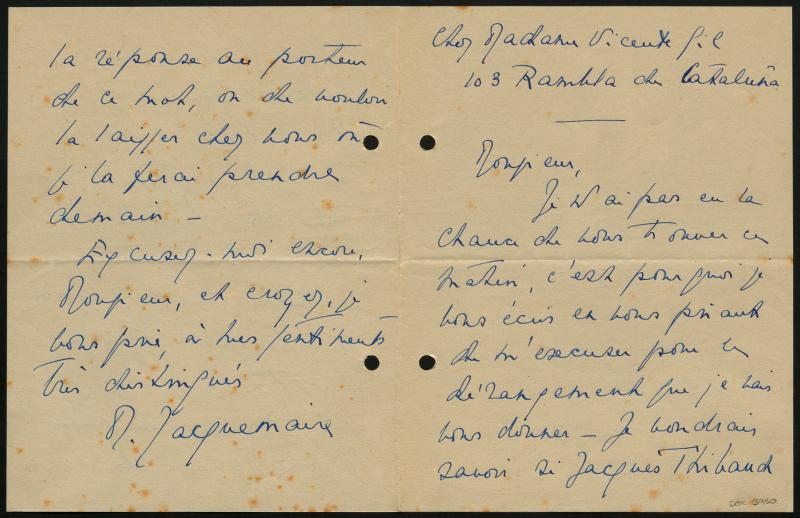 Chez Madame Vicente Gil
103 Rambla de Cataluña
Monsieur,
Je n'ai pas eu la
chance de vous trouver ce
matin, c'est pourquoi je
vous écris en vous priant
de m'excuser pour le
dérangement que je vais
vous donner — Je voudrais
savoir si Jacques Thibaud
la réponse au porteur
de ce mot, ou de vouloir
la laisser chez vous où
je la ferai prendre
demain —
Excusez-moi encore,
Monsieur, et croyez, je
vous prie, à mes sentiments
très distingués
M. Jacquemaire